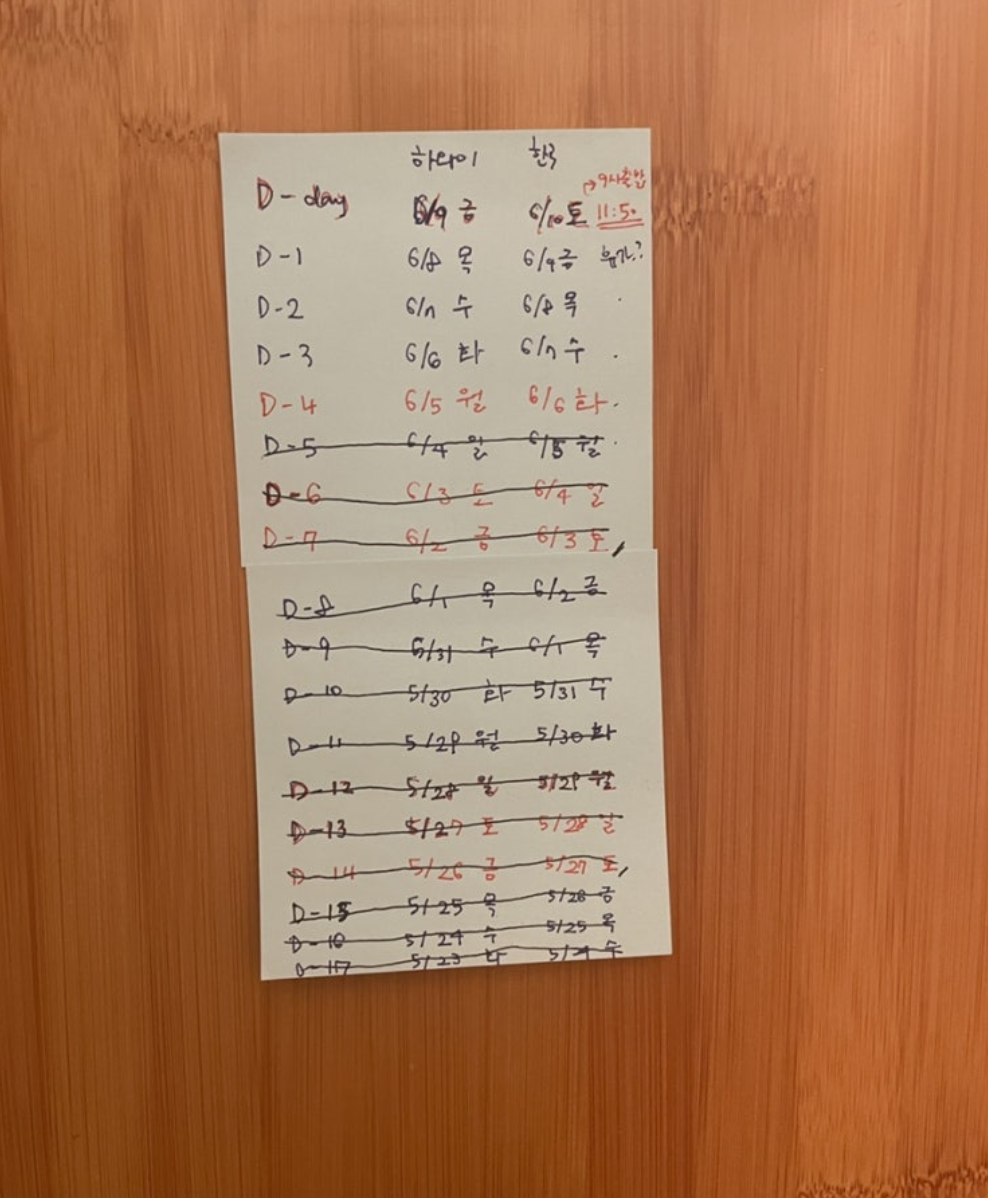 하와이 한국
→9시출발
D-day 6/9 금 6/10 토 11:50
D-1 6/8 목 6/9 금 휴가?
D-2 6/7 수 6/8 목
D-3 6/6 화 6/7 수
D-4 6/5 월 6/6 화
D-5 6/4 일 6/5 월
D-6 6/3 토 6/4 일
D-7 6/2 금 6/3 토
D-8 6/1 목 6/2 금
D-9 5/31 수 6/1 목
D-10 5/30 화 5/31 수
D-11 5/29 월 5/30 화
D-12 5/28 일 5/29 월
D-13 5/27 토 5/28 일
D-14 5/26 금 5/27 토
D-15 5/25 목 5/26 금
D-16 5/24 수 5/25 목
D-17 5/23 화 5/24 수